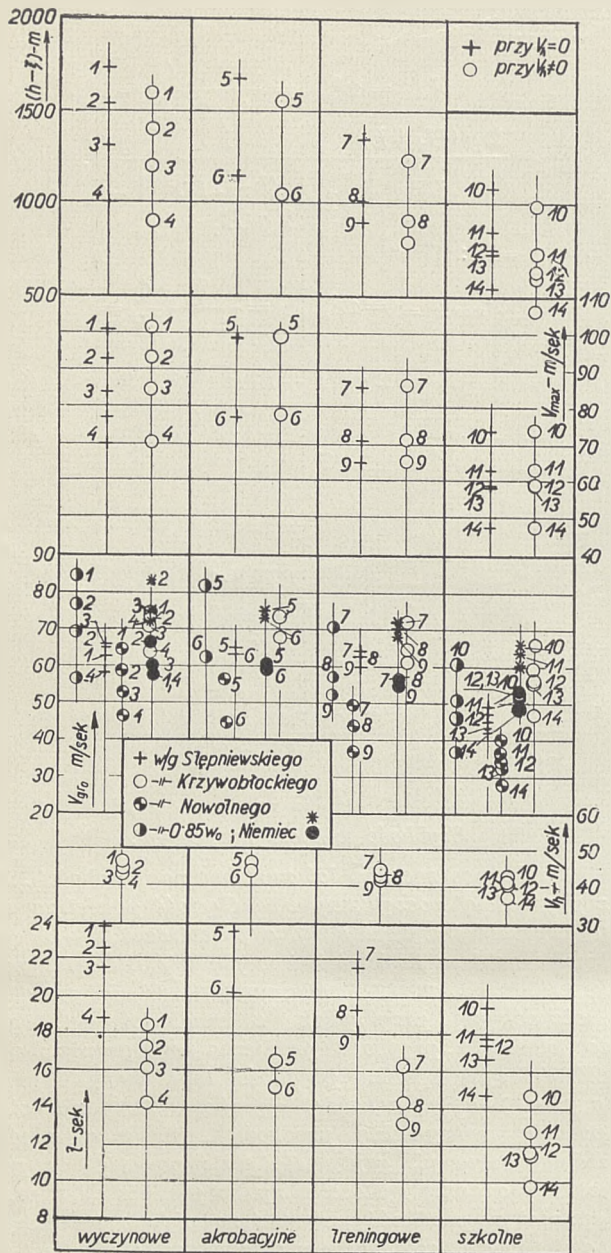 2000
(h-z)-m
1500
1000
500
+ przy Vh=0
○ przy Vh≠0
1 2 3 4
1 2 3 4
5 6
5 6
7 8 9
7 8
10 11 12 13 14
10 11 12 13 14
110
100
90
80
70
60
50
40
Vmax-m/sek
1 2 3 4
1 2 3 4
5 6
5 6
7 8 9
7 8 9
10 11 12 13 14
10 11 12 13 14
90
80
70
60
50
40
30
20
Vgr₀ m/sek
+ w/g Stępniewskiego
○ -"- Krzywobłockiego
-"- Nowolnego
-"- 0·85w₀ ; Niemiec
60
50
40
30
Vh + m/sek
1 2 3 4
5 6
7 8 9
10 11 12 13 14
24
22
20
18
16
14
12
10
8
z-sek
1 2 3 4
1 2 3 4
5 6
5 6
7 8 9
7 8 9
10 11 12 13 14
10 11 12 13 14
wyczynowe
akrobacyjne
treningowe
szkolne